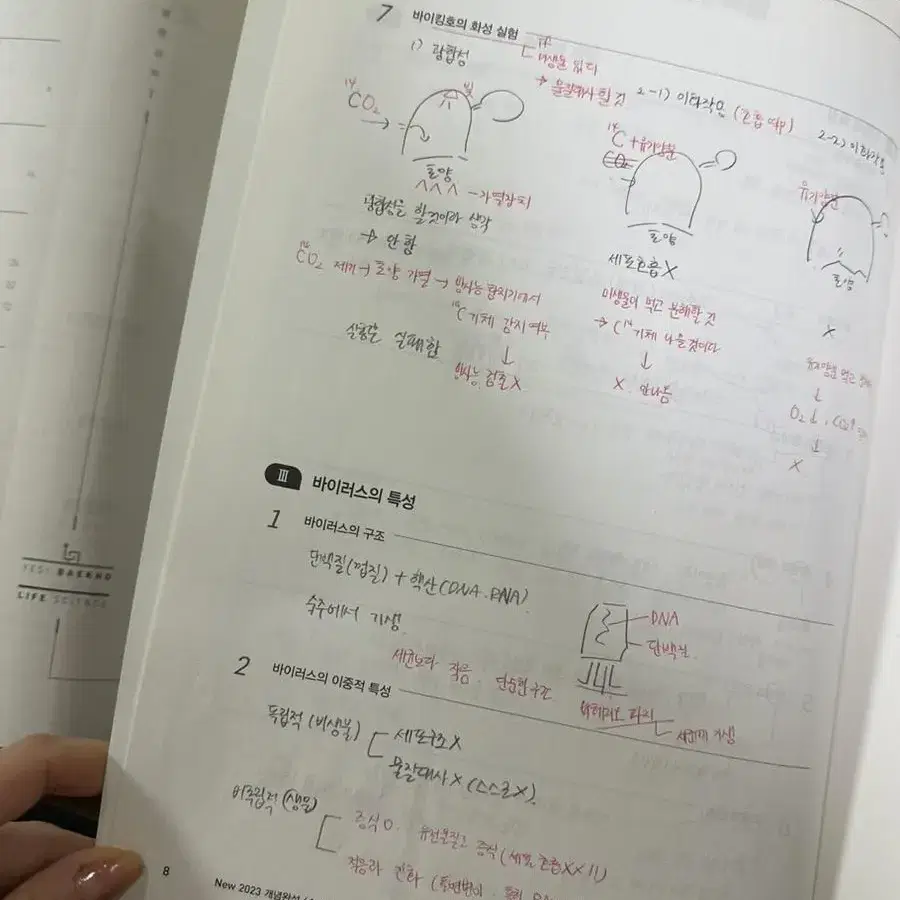 7 바이킹호의 화성 실험
가설 미생물 있다
→ 물질대사 할 것
1) 광합성
2-1) 이화작용 (호흡 여부)
2-2) 이화작용
¹⁴CO₂
빛
토양
가열장치
¹⁴C + 유기양분
CO₂
토양
유기양분
토양
광합성을 할것이라 생각
→ 안함
세포호흡 X
¹⁴CO₂ 제거 → 토양 가열 → 방사능 탐지기에서
¹⁴C 기체 감지 여부
↓
방사능 검출 X
실험은 실패함
미생물이 먹고 분해할 것
→ C¹⁴ 기체 나올것이다
↓
X 안나옴
X
유기양분 먹고
↓
O₂↓, CO₂↑
↓
X
Ⅲ 바이러스의 특성
1 바이러스의 구조
단백질(껍질) + 핵산(DNA, RNA)
숙주에서 기생.
세균보다 작음. 단순한 구조
DNA
단백질
박테리오 파지
세균에 기생
2 바이러스의 이중적 특성
독립적 (비생물)
세포구조 X
물질대사 X (스스로X).
비독립적 (생물)
증식 O. 유전물질로 증식
적응과 진화 (돌연변이
8
New 2023 개념완성
YES! BAEKHO
LIFE SCIENCE